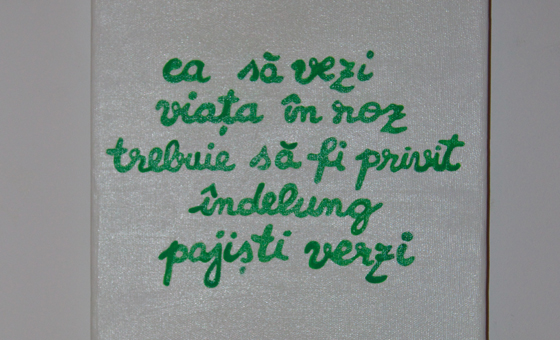 ca să vezi
viața în roz
trebuie să fi privit
îndelung
pajiști verzi